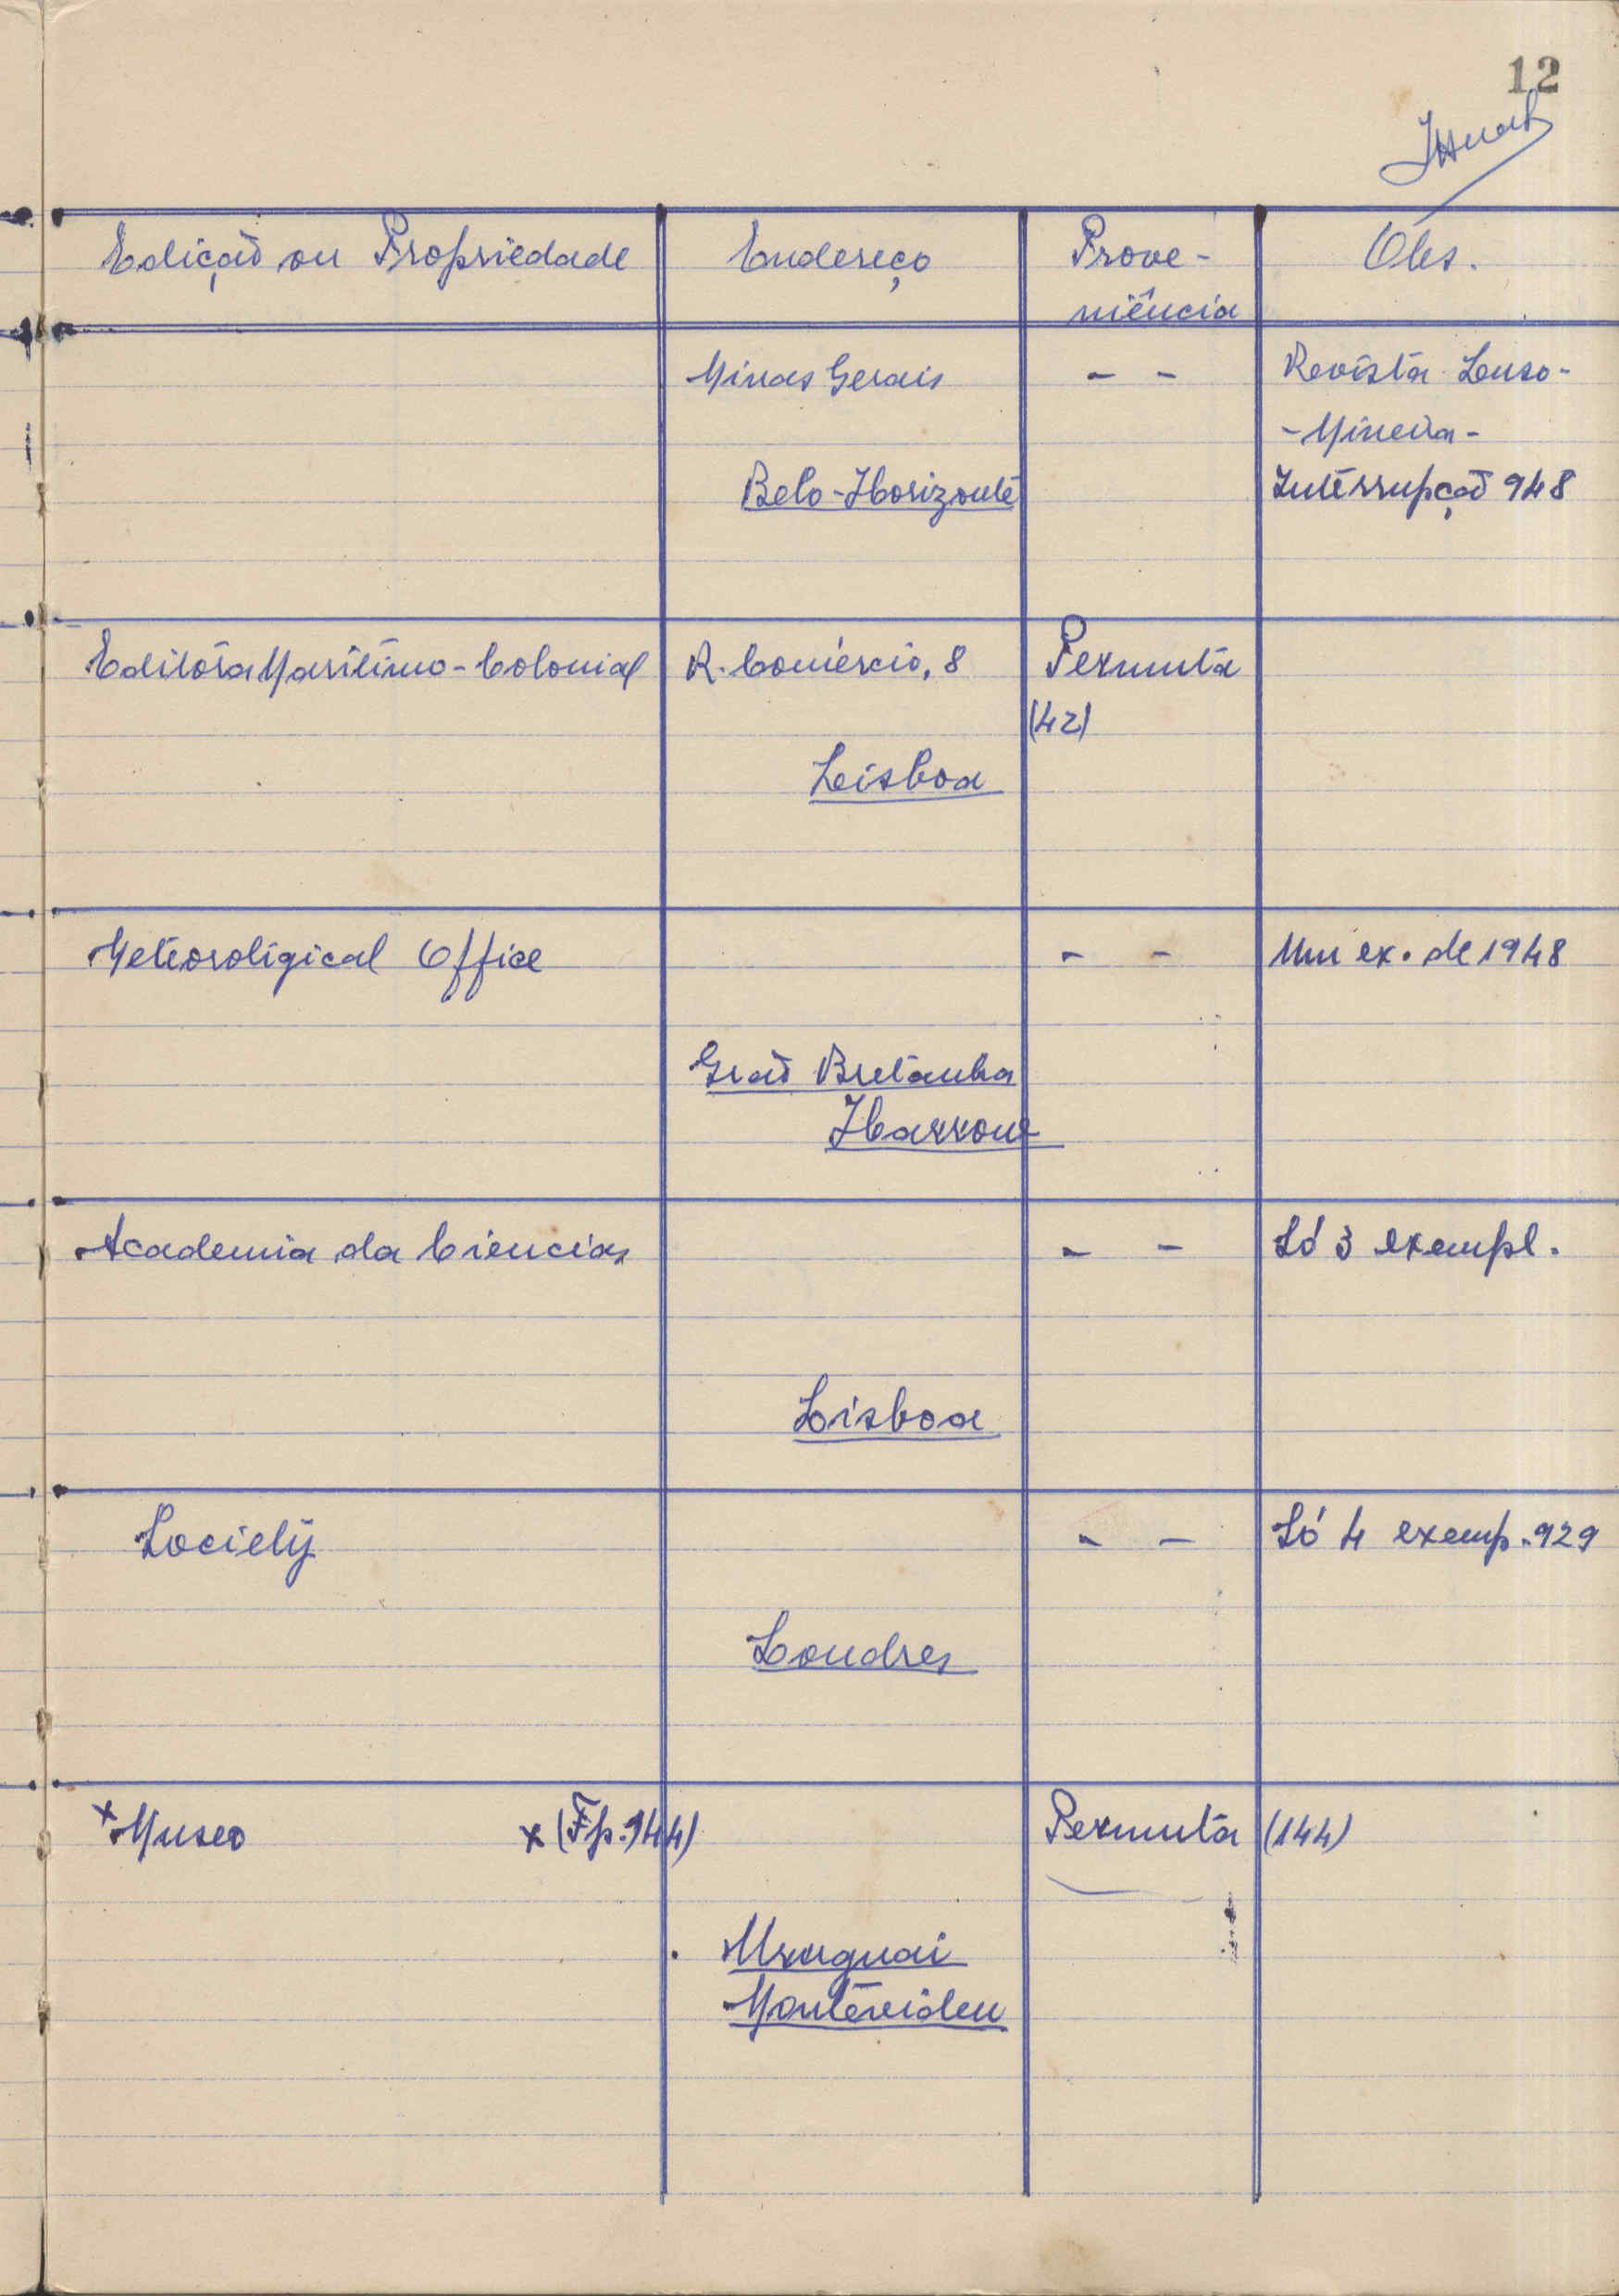 12
Edição ou Propriedade Endereço Prove- Obs.
niência
Minas Gerais - - Revista Luso-
-Mineira-
Belo-Horizonte Interrupção 948
Editora Marítimo-Colonial R. Comércio, 8 Permuta
(42)
Lisboa
Meteoroligical Office - - Um ex. de 1948
Grã Bretanha
Harrow
Academia da Ciencias - - Só 3 exempl.
Lisboa
Society - - Só 4 exemp. 929
Londres
x Museo x (Fp. 944) Permuta (144)
Uruguai
Montevideu